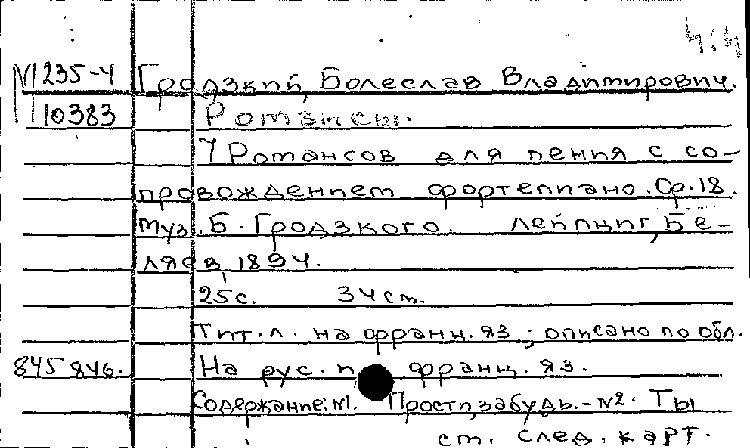 Ч.Ч
М 235-4 Гродзкий, Болеслав Владимирович.
10383 Романсы.
7 Романсов для пения с со-
провождением фортепиано. Ор.18.
Муз. Б. Гродзкого. Лейпциг, Бе-
ляев, 1894.
25с. 34см.
Тит.л. на франц. яз.; описано по обл.
845 846. На рус. и франц. яз.
Содержание: №1. Прости, забудь. - №2. Ты
см. след. карт.